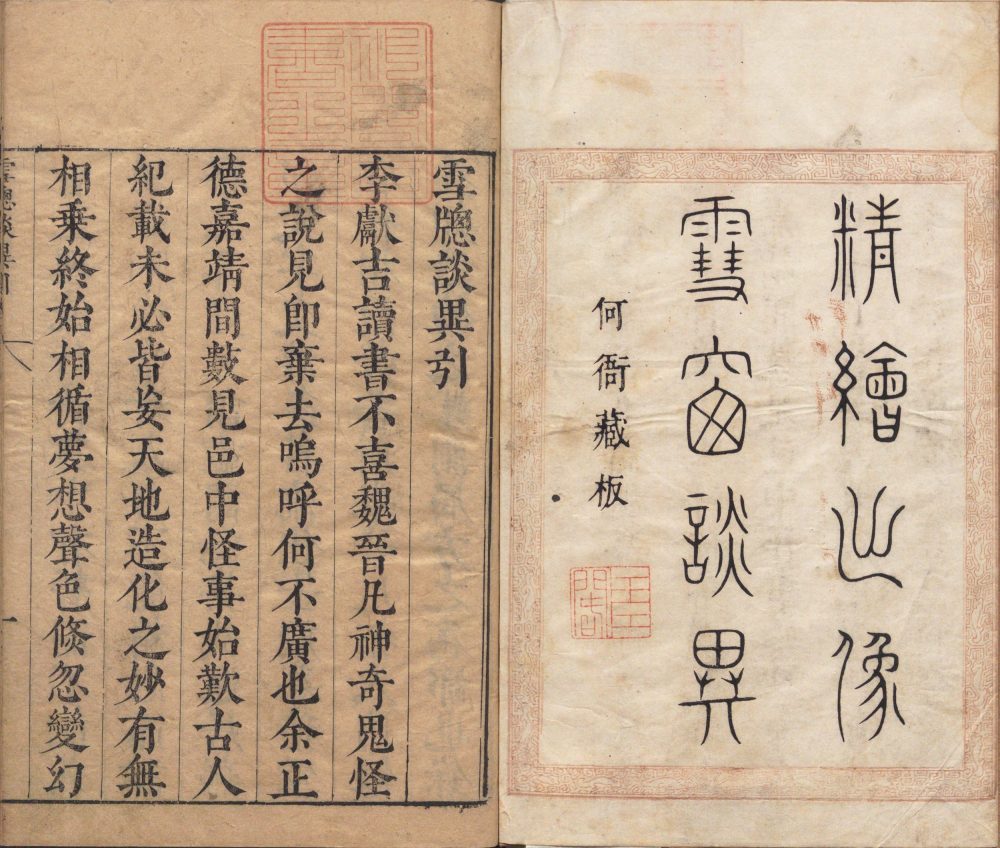 精繪出像
雪窗談異
何衙藏板
雪牕談異引
李獻吉讀書不喜魏晉凡神奇鬼怪
之說見卽棄去嗚呼何不廣也余正
德嘉靖間數見邑中怪事始歎古人
紀載未必皆妄天地造化之妙有無
相乘終始相循夢想聲色倏忽變幻
雪牕談異引
一